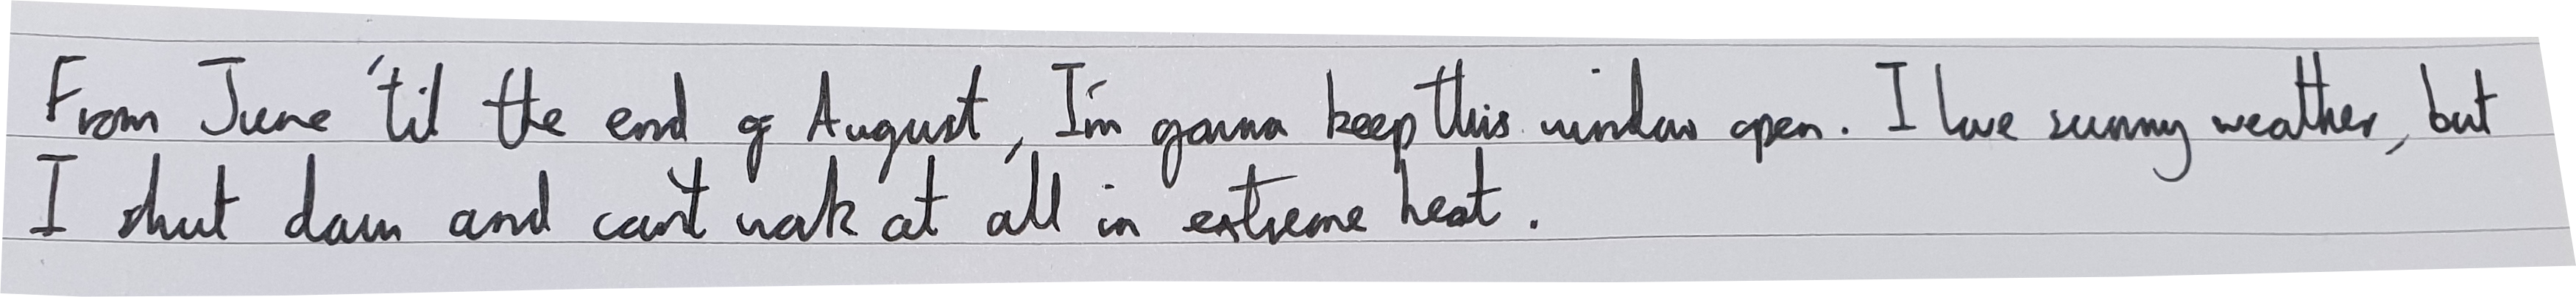 From June 'til the end of August, I'm gonna keep this window open. I love sunny weather, but
I shut down and can't work at all in extreme heat.